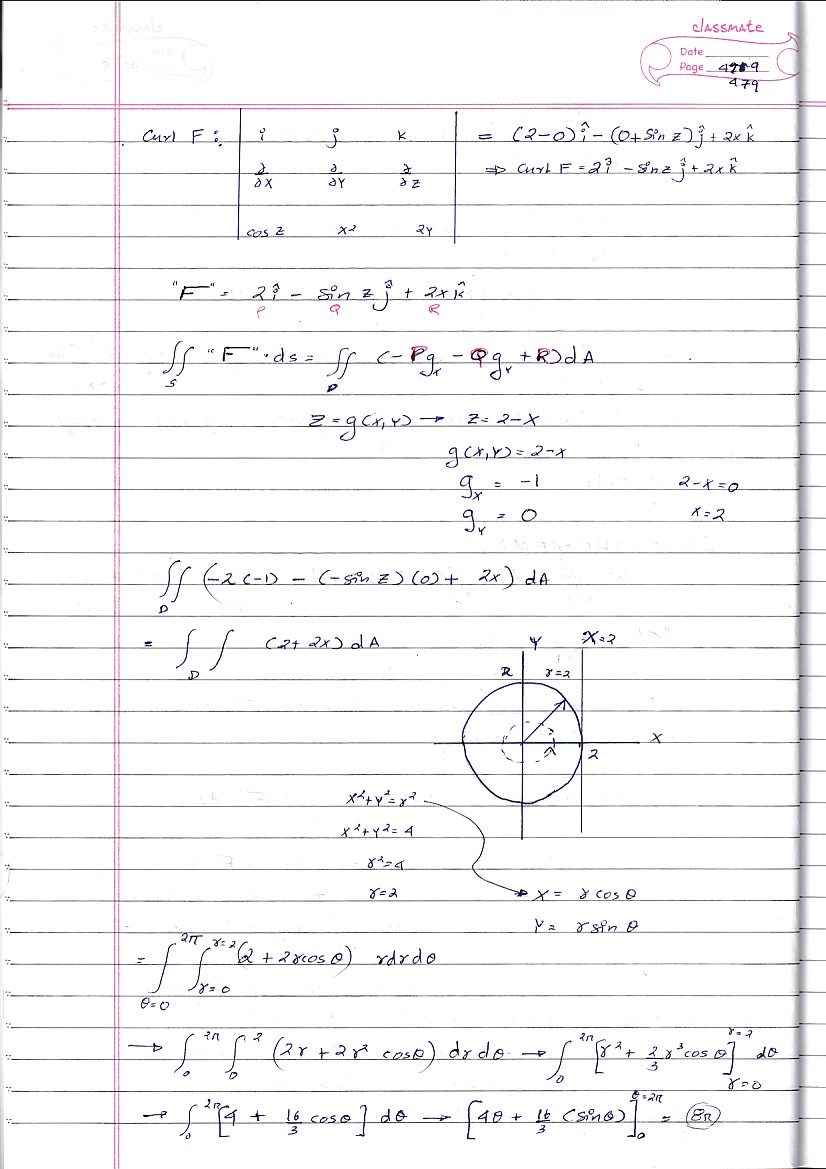 classmate
Date
Page 479
479
Curl F :. | i j k | = (2-0)î - (0+sin z)ĵ + 2x k̂
∂/∂x ∂/∂y ∂/∂z ⇒ Curl F = 2î - sin z ĵ + 2x k̂
cos z x² 2y
"F" = 2î - sin z ĵ + 2x k̂
P Q R
∬_S "F"·ds = ∬_D (-Pg_x - Qg_y + R) dA
z = g(x,y) → z = 2-x
g(x,y) = 2-x
g_x = -1 2-x=0
g_y = 0 x=2
∬_D (-2(-1) - (-sin z)(0) + 2x) dA
= ∬_D (2+2x) dA
Y x=2
2 r=2
X
2
x²+y²=r²
x²+y²=4
r²=4
r=2 x = r cos θ
y = r sin θ
= ∫_{θ=0}^{2π} ∫_{r=0}^{r=2} (2 + 2r cos θ) r dr dθ
→ ∫_0^{2π} ∫_0^2 (2r + 2r² cos θ) dr dθ → ∫_0^{2π} [r² + 2/3 r³ cos θ]_{r=0}^{r=2} dθ
→ ∫_0^{2π} [4 + 16/3 cos θ] dθ → [4θ + 16/3 (sin θ)]_0^{θ=2π} = 8π